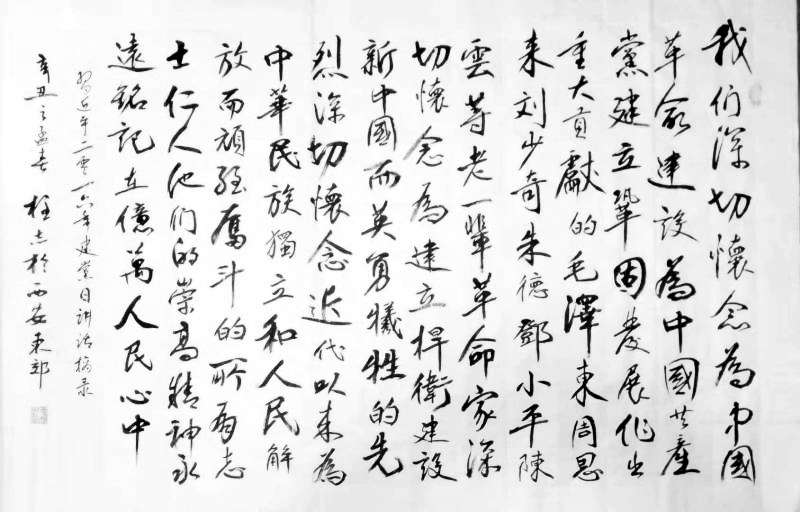 我们深切懷念為中國
革命建设為中國共產
黨建立鞏固发展作出
重大貢獻的毛澤東周恩
来刘少奇朱德鄧小平陳
雲等老一輩革命家深
切懷念為建立捍衛建設
新中國而英勇犧牲的先
烈深切懷念近代以来為
中華民族獨立和人民解
放而顽强奮斗的所有志
士仁人他们的崇高精神永
遠銘記在億萬人民心中
习近平二零一六年建党日讲话摘录
辛丑之孟春 柱志於西安東郊